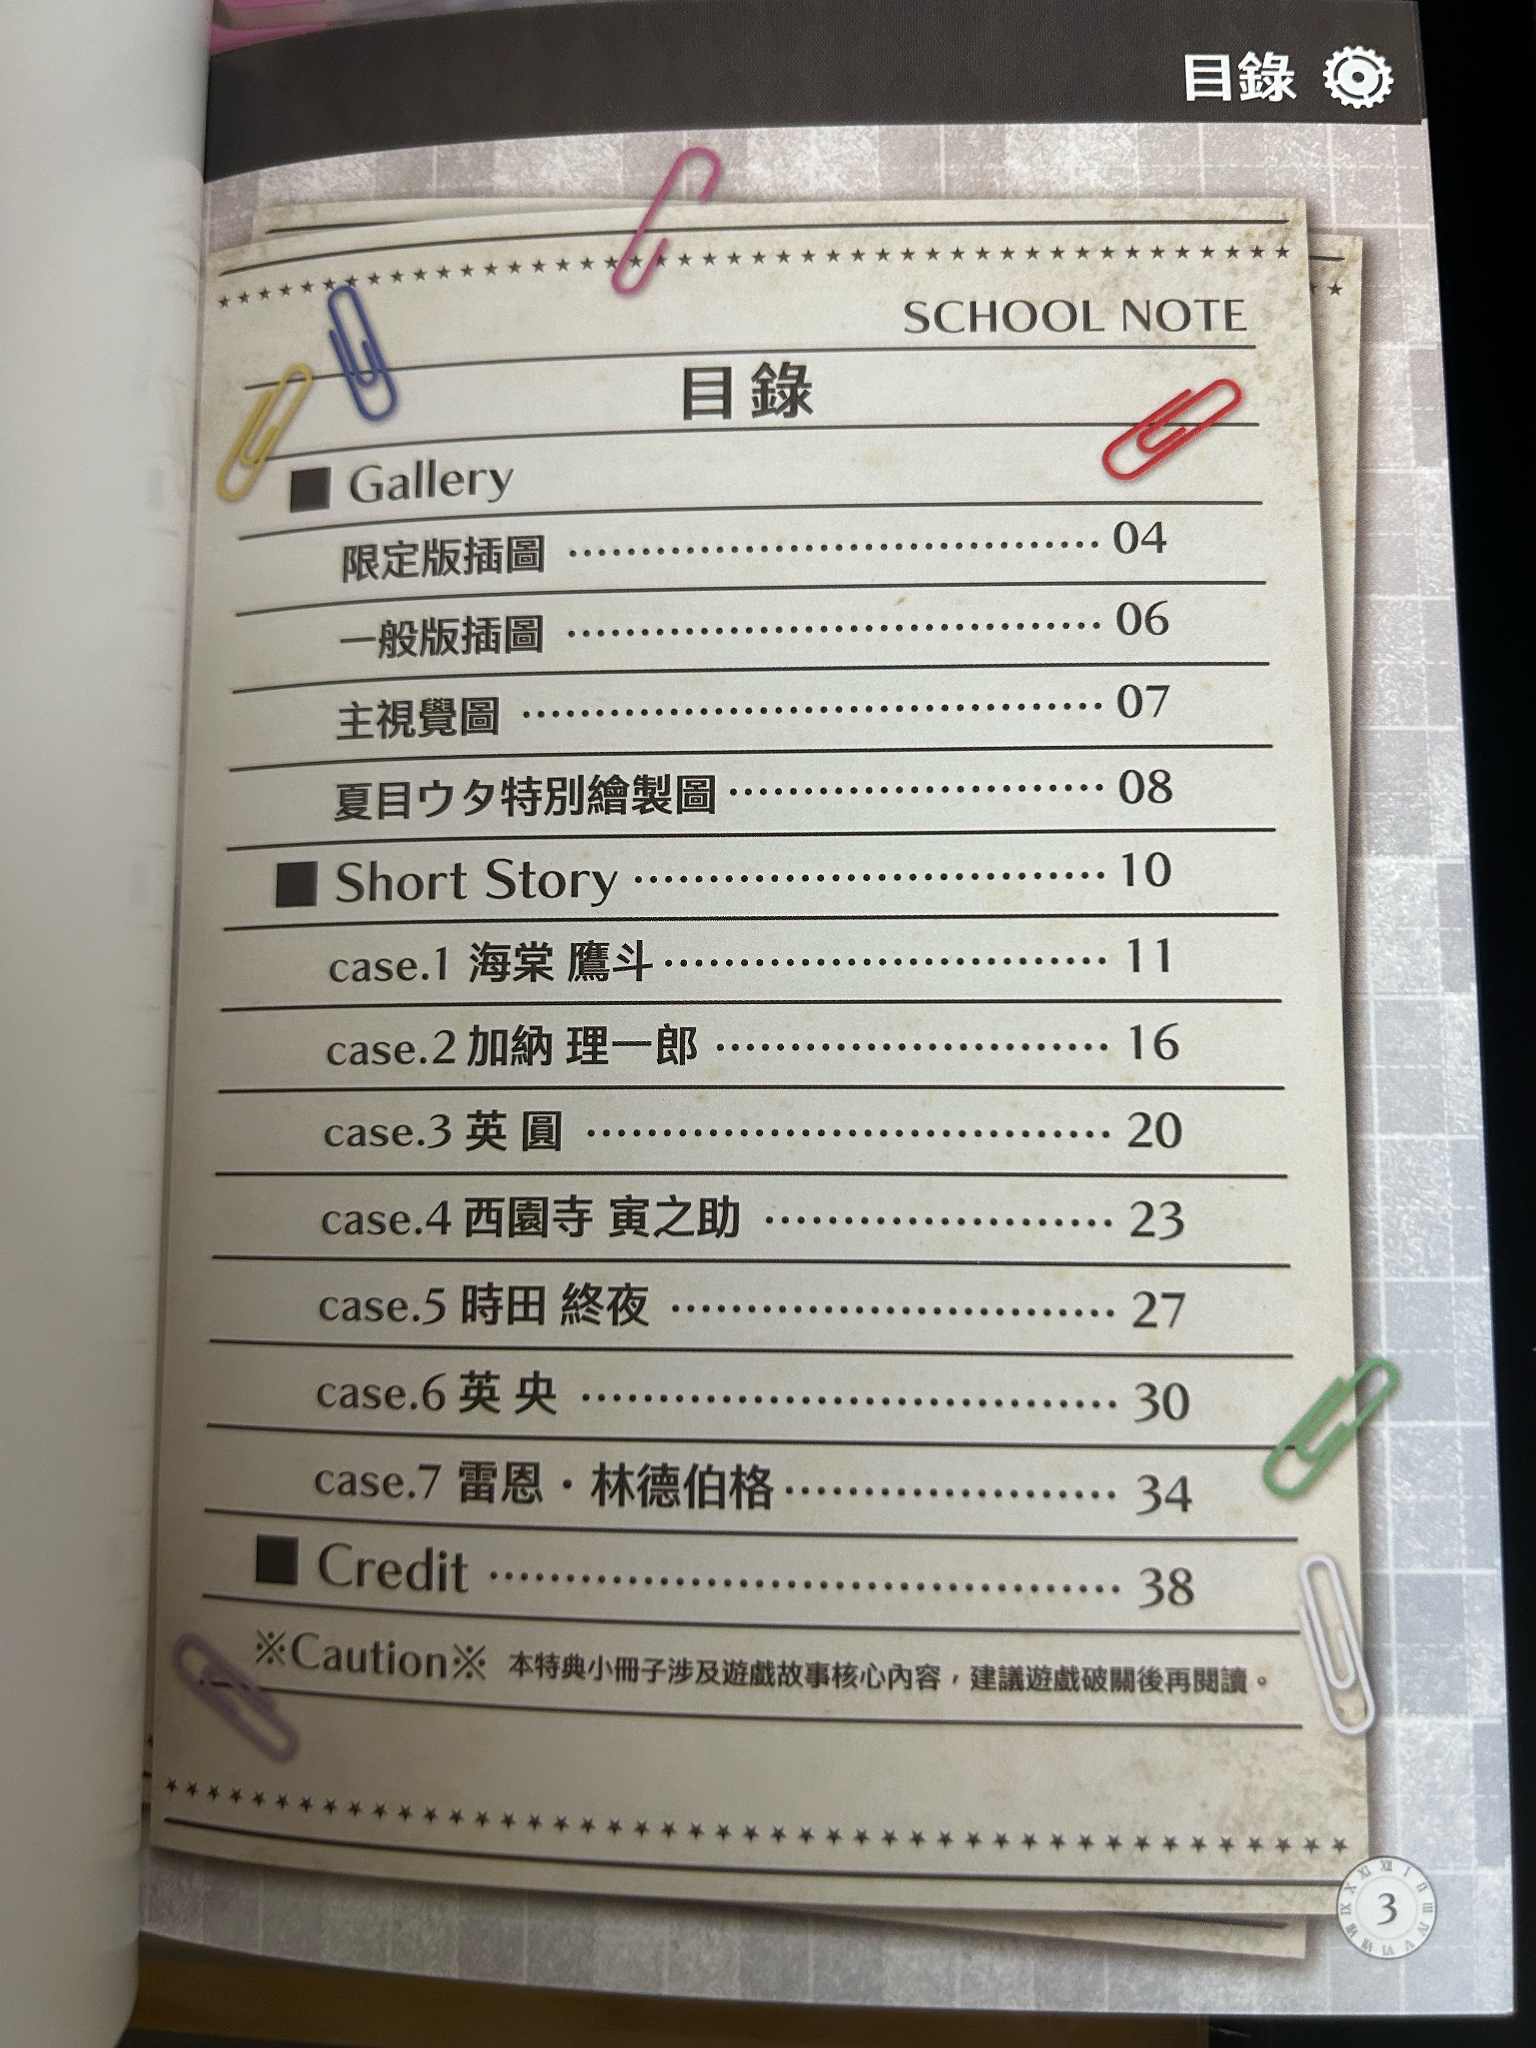 目錄
SCHOOL NOTE
目錄
■ Gallery
限定版插圖 ⋯⋯⋯⋯⋯⋯⋯⋯⋯⋯⋯⋯ 04
一般版插圖 ⋯⋯⋯⋯⋯⋯⋯⋯⋯⋯⋯⋯ 06
主視覺圖 ⋯⋯⋯⋯⋯⋯⋯⋯⋯⋯⋯⋯⋯ 07
夏目ウタ特別繪製圖 ⋯⋯⋯⋯⋯⋯⋯⋯⋯ 08
■ Short Story ⋯⋯⋯⋯⋯⋯⋯⋯⋯⋯⋯ 10
case.1 海棠 鷹斗 ⋯⋯⋯⋯⋯⋯⋯⋯⋯⋯ 11
case.2 加納 理一郎 ⋯⋯⋯⋯⋯⋯⋯⋯⋯ 16
case.3 英 圓 ⋯⋯⋯⋯⋯⋯⋯⋯⋯⋯⋯⋯ 20
case.4 西園寺 寅之助 ⋯⋯⋯⋯⋯⋯⋯⋯ 23
case.5 時田 終夜 ⋯⋯⋯⋯⋯⋯⋯⋯⋯⋯ 27
case.6 英 央 ⋯⋯⋯⋯⋯⋯⋯⋯⋯⋯⋯⋯ 30
case.7 雷恩・林德伯格 ⋯⋯⋯⋯⋯⋯⋯⋯ 34
■ Credit ⋯⋯⋯⋯⋯⋯⋯⋯⋯⋯⋯⋯⋯ 38
※Caution※ 本特典小冊子涉及遊戲故事核心內容，建議遊戲破關後再閱讀。
3